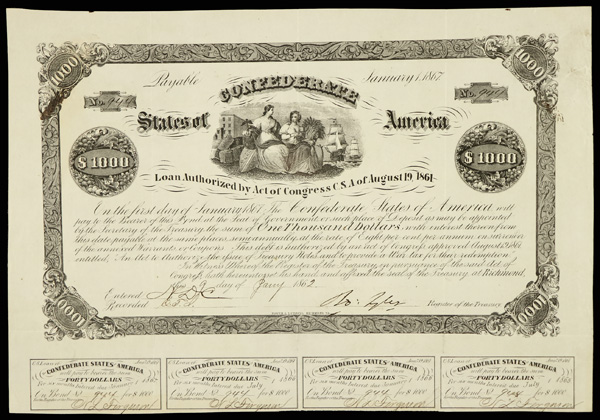 1000 1000
Payable January 1, 1867
CONFEDERATE
No. 944 No. 944
States of America
$1000 $1000
Loan Authorized by Act of Congress C.S.A of August 19, 1861
On the first day of January 1867 The Confederate States of America will
pay to the Bearer of this Bond at the Seat of Government or such place of Deposit as may be appointed
by the Secretary of the Treasury, the sum of ONE Thousand Dollars, with interest thereon from
this date payable at the same places, semi annually, at the rate of Eight per cent per annum on surrender
of the annexed Warrants, or Coupons. This debt is authorized by an Act of Congress approved August 19, 1861,
entitled, An Act to Authorize the Issue of Treasury Notes, and to provide a War tax for their redemption.
In Witness Whereof the Register of the Treasury, in pursuance of the said Act of
Congress, hath hereunto set his hand and affixed the seal of the Treasury, at Richmond,
this 9 day of Jany 1862
Entered
Recorded
Ro. Tyler Register of the Treasury
1000 1000
CONFEDERATE STATES AMERICA CONFEDERATE STATES AMERICA CONFEDERATE STATES AMERICA CONFEDERATE STATES AMERICA
will pay to bearer the sum will pay to bearer the sum will pay to bearer the sum will pay to bearer the sum
FORTY DOLLARS FORTY DOLLARS FORTY DOLLARS FORTY DOLLARS
on Bond 944 for $1000 on Bond 944 for $1000 on Bond 944 for $1000 on Bond 944 for $1000